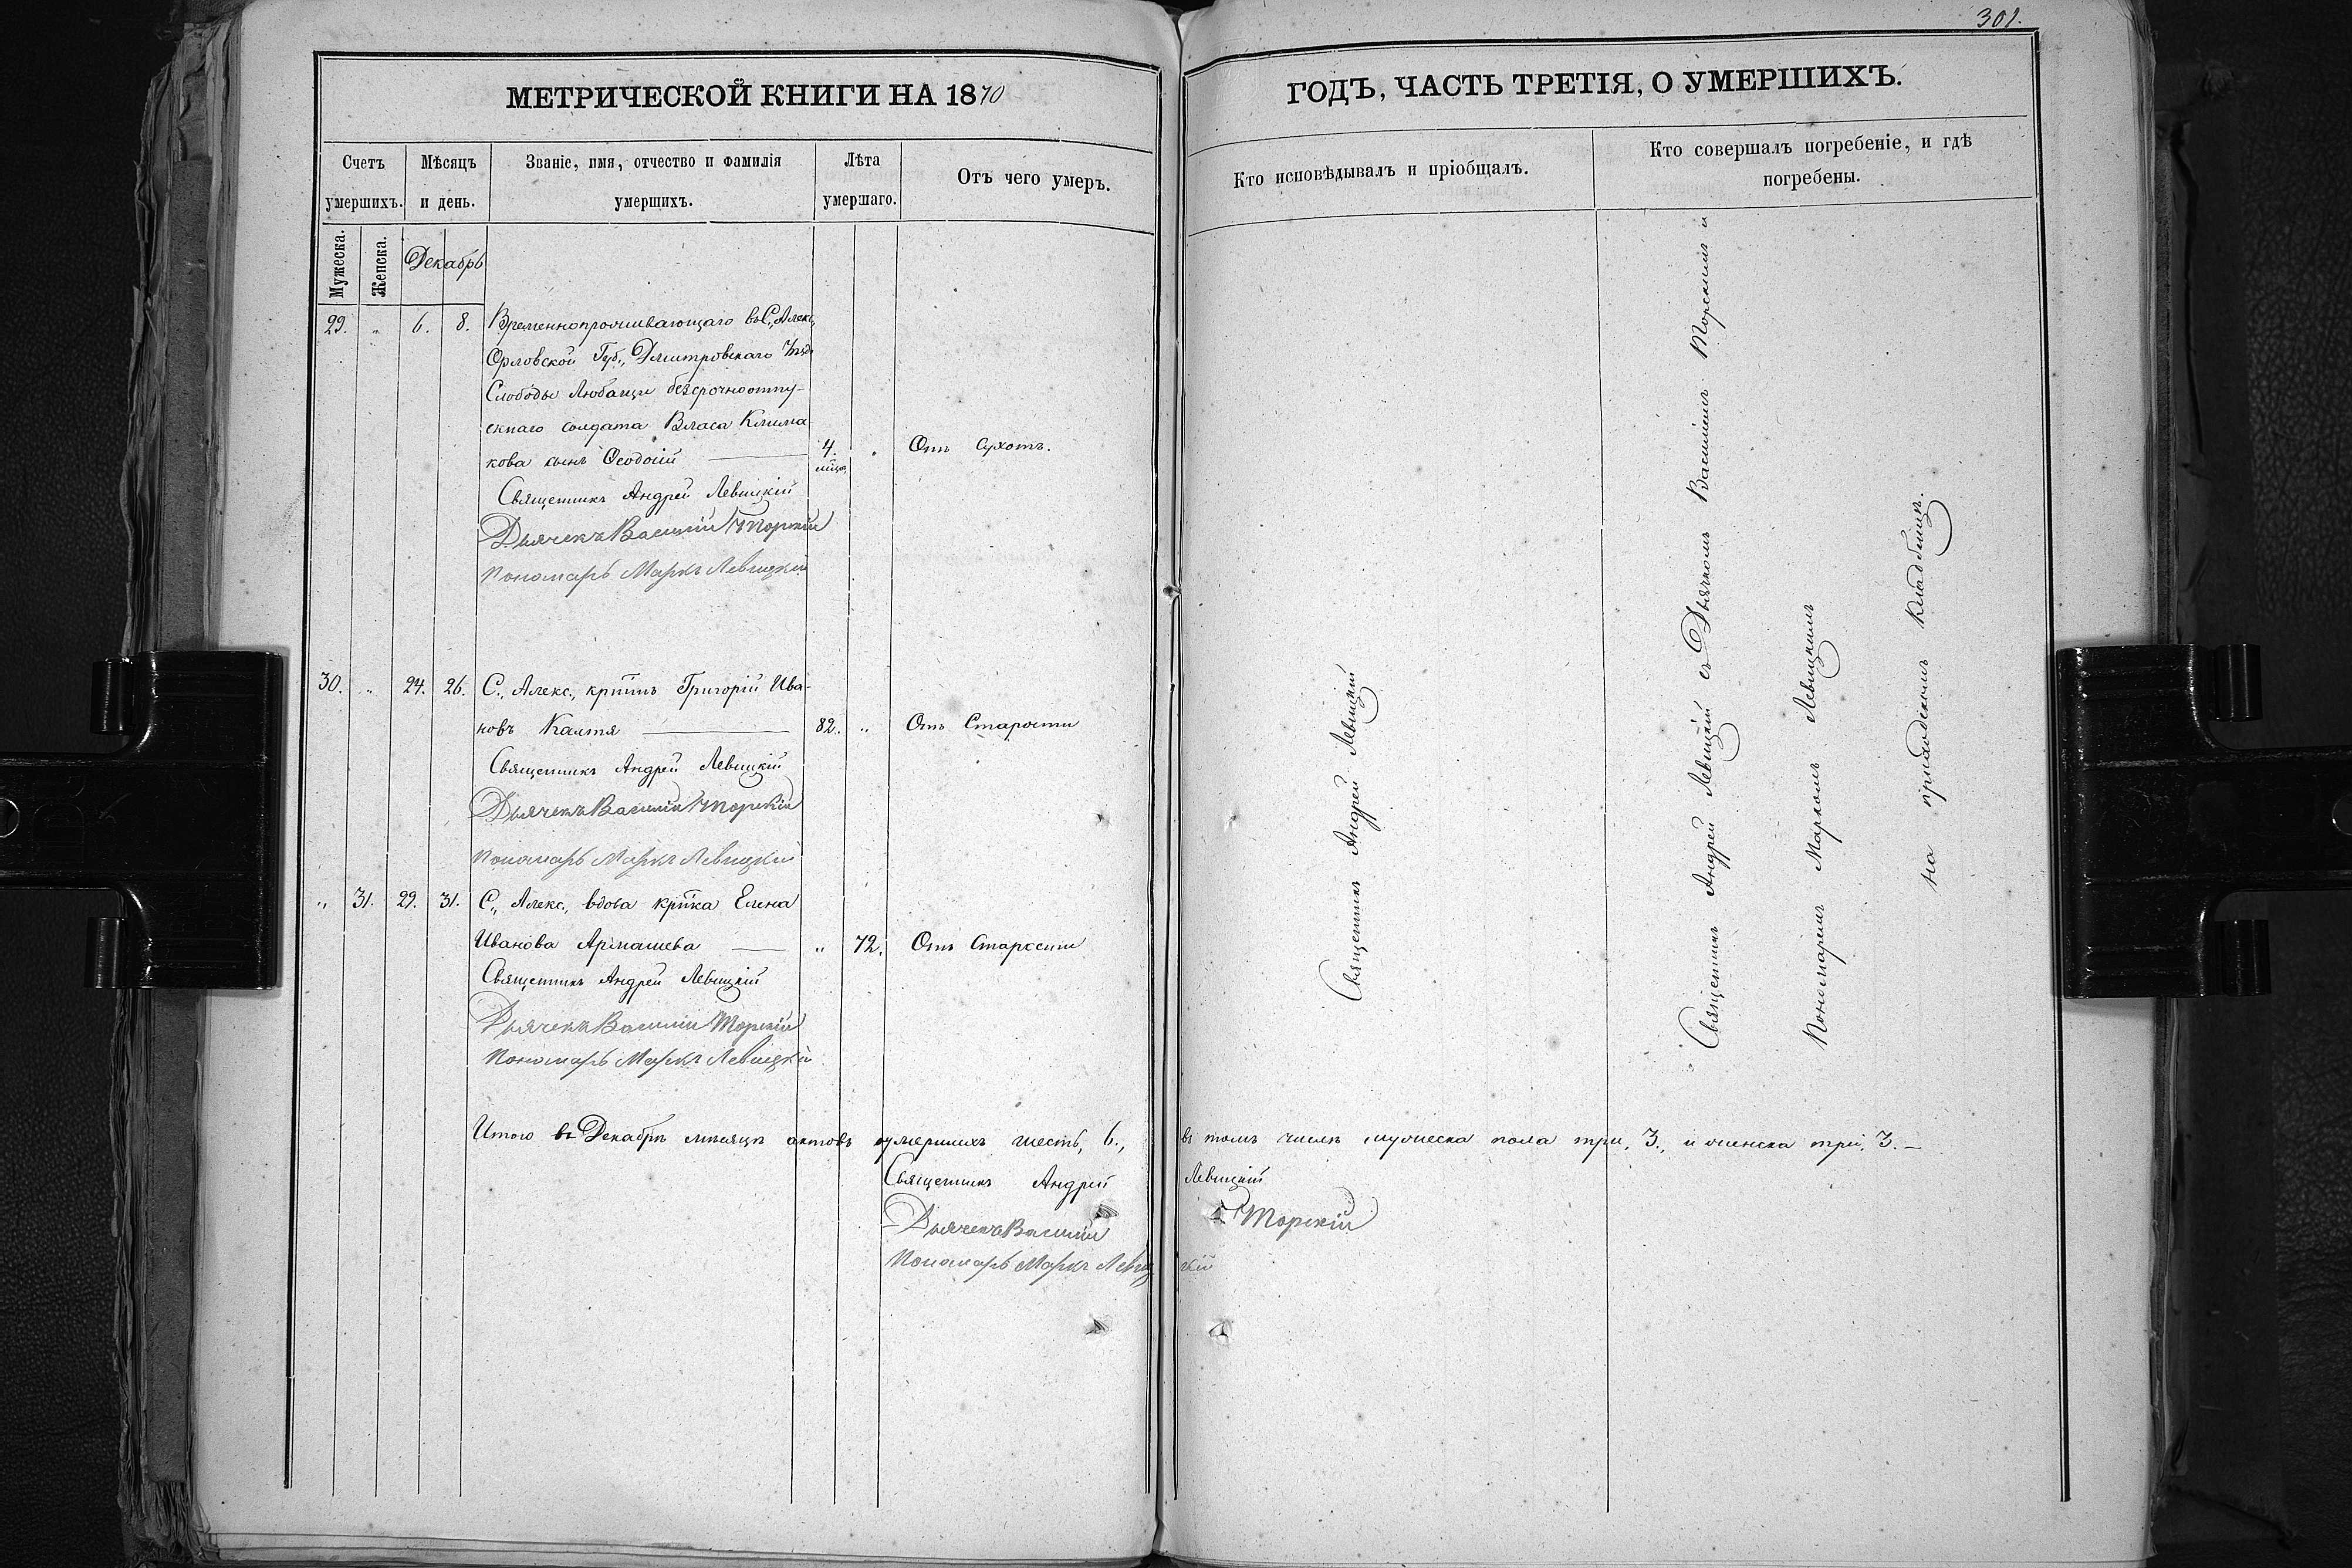 301.
МЕТРИЧЕСКОЙ КНИГИ НА 1870
ГОДЪ, ЧАСТЬ ТРЕТІЯ, О УМЕРШИХЪ.
Счетъ умершихъ.
Мѣсяцъ и день.
Званіе, имя, отчество и фамилія умершихъ.
Лѣта умершаго.
Отъ чего умеръ.
Кто исповѣдывалъ и пріобщалъ.
Кто совершалъ погребеніе, и гдѣ погребены.
Мужеска.
Женска.
Декабрь
29. „ 6. 8. Временнопроживающаго въ С. Алекс.,
Орловской Губ., Дмитровскаго Уѣзда
Слободы Любащи безсрочноотпу-
скнаго солдата Власа Клима
кова сынъ Ѳеодосій — 4. мѣсяца „ Отъ Сухотъ.
Священникъ Андрей Левицкій
Дьячекъ Василій Торскій
Пономарь Маркъ Левицкій
30. „ 24. 26. С., Алекс., кр͠тнъ Григорій Ива-
новъ Калтя — 82. „ Отъ Старости
Священникъ Андрей Левицкій
Дьячекъ Василій Торскій
Пономарь Маркъ Левицкій
„ 31. 29. 31. С., Алекс., вдова кр͠тка Елена
Иванова Армашева — „ 72. Отъ Старости
Священникъ Андрей Левицкій
Дьячекъ Василій Торскій
Пономарь Маркъ Левицкій
Священникъ Андрей Левицкій
Священникъ Андрей Левицкій съ Дьячкомъ Василіемъ Торскимъ и
Пономаремъ Маркомъ Левицкимъ
на приходскомъ кладбищѣ.
Итого въ Декабрѣ мѣсяцѣ актовъ умершихъ шесть, 6., въ томъ числѣ мужеска пола три, 3., и женска три, 3. —
Священникъ Андрей Левицкій
Дьячекъ Василій Торскій
Пономарь Маркъ Левицкій